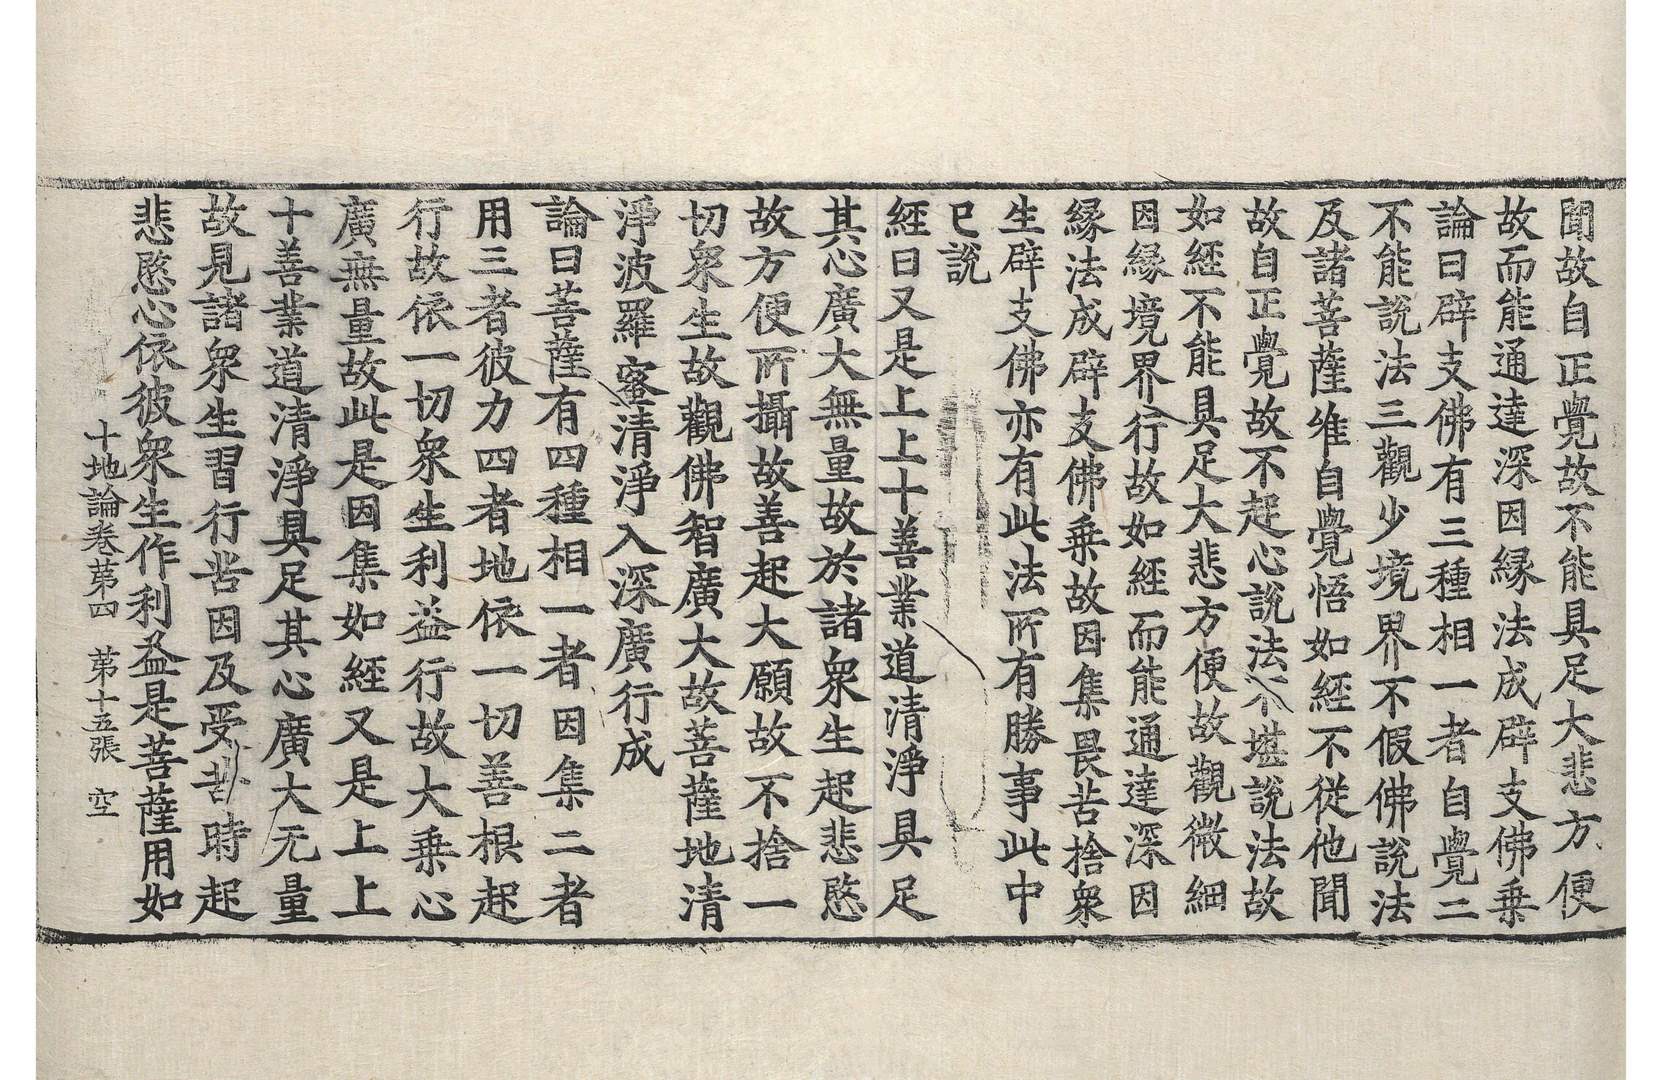 聞故自正覺故不能具足大悲方便
故而能通達深因緣法成辟支佛乗
論曰辟支佛有三種相一者自覺二
不能說法三觀少境界不假佛說法
及諸菩薩維自覺悟如經不從他聞
故自正覺故不起心說法不堪說法故
如經不能具足大悲方便故觀微細
因緣境界行故如經而能通達深因
緣法成辟支佛乗故因集畏苦捨衆
生辟支佛亦有此法所有勝事此中
已說
經曰又是上上十善業道清淨具足
其心廣大無量故於諸衆生起悲愍
故方便所攝故善起大願故不捨一
切衆生故觀佛智廣大故菩薩地清
淨波羅蜜清淨入深廣行成
論曰菩薩有四種相一者因集二者
用三者彼力四者地依一切善根起
行故依一切衆生利益行故大乗心
廣無量故此是因集如經又是上上
十善業道清淨具足其心廣大无量
故見諸衆生習行苦因及受苦時起
悲愍心依彼衆生作利益是菩薩用如
十地論卷第四　第十五張　空